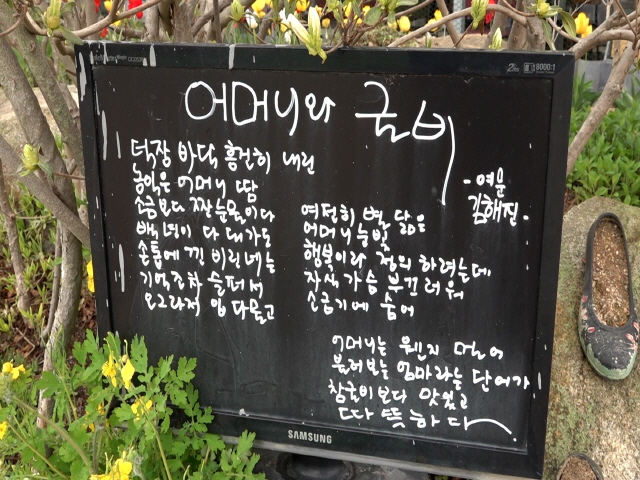 어머니와 굴비
- 여운
김해진 -
덕장 바닥 흥건히 내린
농익은 어머니 땀
소금보다 짠 눈물이다
백년이 다 대가도
손톱에 낀 비린내는
기억조차 슬퍼서
오그라져 입 다물고
여전히 변 닮은
어머니 눈빛
행복이라 정의 하려는데
자식 가슴 부끄러워
소금기에 숨어
어머니는 웬지 멀어
불러보는 엄마라는 단어가
참국이보다 맛있고
따뜻하다
SAMSUNG
8000:1